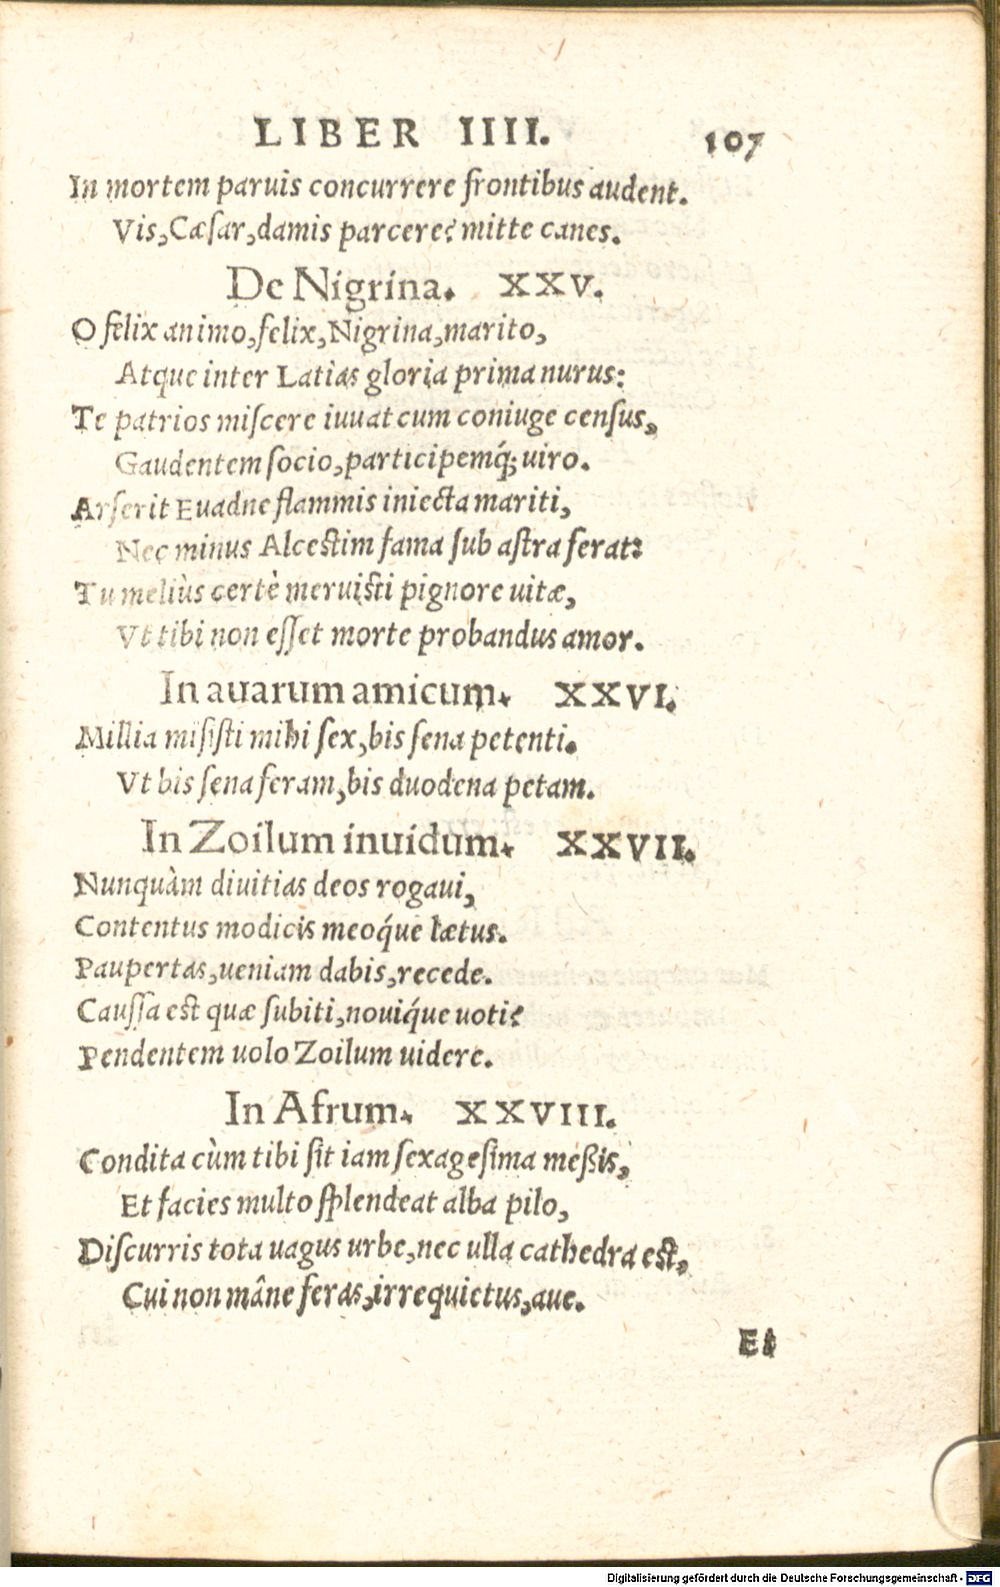 LIBER IIII. 107
In mortem paruis concurrere frontibus audent.
Vis, Cæsar, damis parcere? mitte canes.
De Nigrina. XXV.
O felix animo, felix, Nigrina, marito,
Atque inter Latias gloria prima nurus:
Te patrios miscere iuuat cum coniuge census,
Gaudentem socio, participemq́; uiro.
Arserit Euadne flammis iniecta mariti,
Nec minus Alcestim fama sub astra ferat:
Tu meliùs certè meruisti pignore uitæ,
Vt tibi non esset morte probandus amor.
In auarum amicum. XXVI.
Millia misisti mihi sex, bis sena petenti.
Vt bis sena feram, bis duodena petam.
In Zoilum inuidum. XXVII.
Nunquàm diuitias deos rogaui,
Contentus modicis meoq́ue lætus.
Paupertas, ueniam dabis, recede.
Caussa est quæ subiti, nouiq́ue uoti?
Pendentem uolo Zoilum uidere.
In Afrum. XXVIII.
Condita cùm tibi sit iam sexagesima meßis,
Et facies multo splendeat alba pilo,
Discurris tota uagus urbe, nec ulla cathedra est,
Cui non mâne feras, irrequietus, aue.
Et
Digitalisierung gefördert durch die Deutsche Forschungsgemeinschaft - DFG